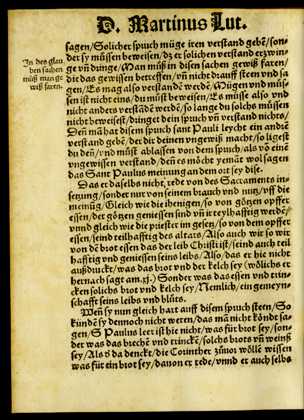 D. Martinus Lut.
sagen/Solicher spruch müge iren verstand gebē/son-
In des glau
ben sachen
müß man ge
wiß faren.
der sy müssen beweisen/dz er solichen verstand er zwin-
ge vn̄ dringe/Man müß in disen sachen gewiß faren/
die das gewissen betreffen/vn̄ nicht drauff steen vnd sa-
gen/Es mag also verstandē werdē/Mügen vnd müs-
sen ist nicht eins/du müst beweisen/Es müsse also vnd
nicht anders verstandē werdē/so lange du solchs müssen
nicht beweisest/dringet dein spruch vn̄ verstand nichts/
Den̄ mā hat disem spruch sant Pauli leycht ein andern
verstand gebē/der dir deinen vngewiß macht/so ligest
du deñ/vnd müst ablassen von dem spruch/als vō eine̅
vngewissen verstand/den̄ es möcht yemāt wol sagen
das Sant Paulus meinung an dem ort sey dise.
Das er daselbs nicht rede von des Sacraments in-
setzung/sondern nur von seinem brauch vnd nutz/vff die
meinūg/Gleich wie die ihenigen/so von götzen opffer
essen/der götzen geniessen sind vn̄ it teylhafftig werdē/
vnnd gleich wie die priester in gesetz/so von dem opffer
essen/seind teilhafftig des altars/Also auch wir so wir
von dē brot essen das der leib Christi ist/seind auch teil
hafftig vnd geniessen seins leibs/Also/das er hie nicht
außdruckt/was das brot vnd der kelch sey (wölichs er
hernach sagt am.xj.) Sonder was das essen vnd trin-
cken solichs brot vnd kelch sey/Nemlich/ein gemeyn-
schafft seins leibs vnd blüts.
Weñ sy nun gleich hart auff disem spruch steen/So
kündē sy dennoch nicht weren/das mā nicht köndt sa-
gen/S Paulus leert ist hie nicht/was für brot sey/son-
der was das brechē vnd trinckē/solchs brots vn̄ weinß
sey/Als ō da denckt/die Corinther zůuor wölle wissen
was für ein brot sey/dauon er rede/vnnd er auch selbs